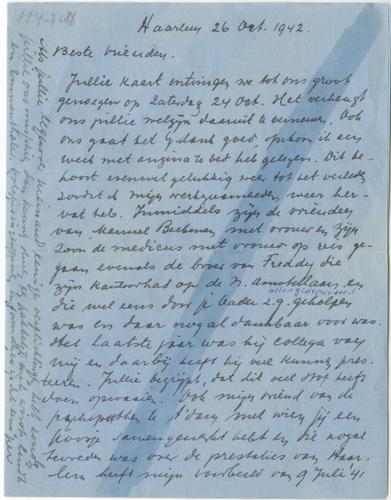 Haarlem 26 Oct. 1942.
Beste vrienden.
Jullie kaart ontvingen we tot ons groot
genoegen op Zaterdag 24 Oct. Het verheugt
ons jullie welzijn daaruit te vernemen. Ook
ons gaat het g. dank goed, ofschoon ik een
week met angina te bed heb gelegen. Dit be-
hoort evenwel gelukkig weer tot het verleden
zoodat ik mijn werkzaamheden weer her-
vat heb. Inmiddels zijn de vrienden
van Manuel met vrouw en zijn
zoon de medicus met vrouw op reis ge-
gaan evenals de broer van Freddy die
zijn kantoor had op de N. Amstellaan en
die wel eens door je leader z.g. geholpen
was en daar nogal dankbaar voor was.
Het laatste jaar was hij collega van
mij en daarbij heeft hij veel kunnen pres-
teeren. Jullie begrijpt, dat dit veel stof heeft
doen opwaaien. Ook mijn vriend van de
te A'dam met wien jij een
poosje samengewerkt hebt en die nogal
tevreden was over de prestaties van Haar-
lem heeft mijn voorbeeld van 9 Juli '41
Als jullie